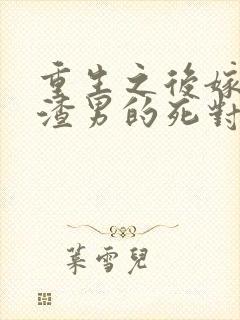 重生之後嫁
渣男的死對
葉雪兒